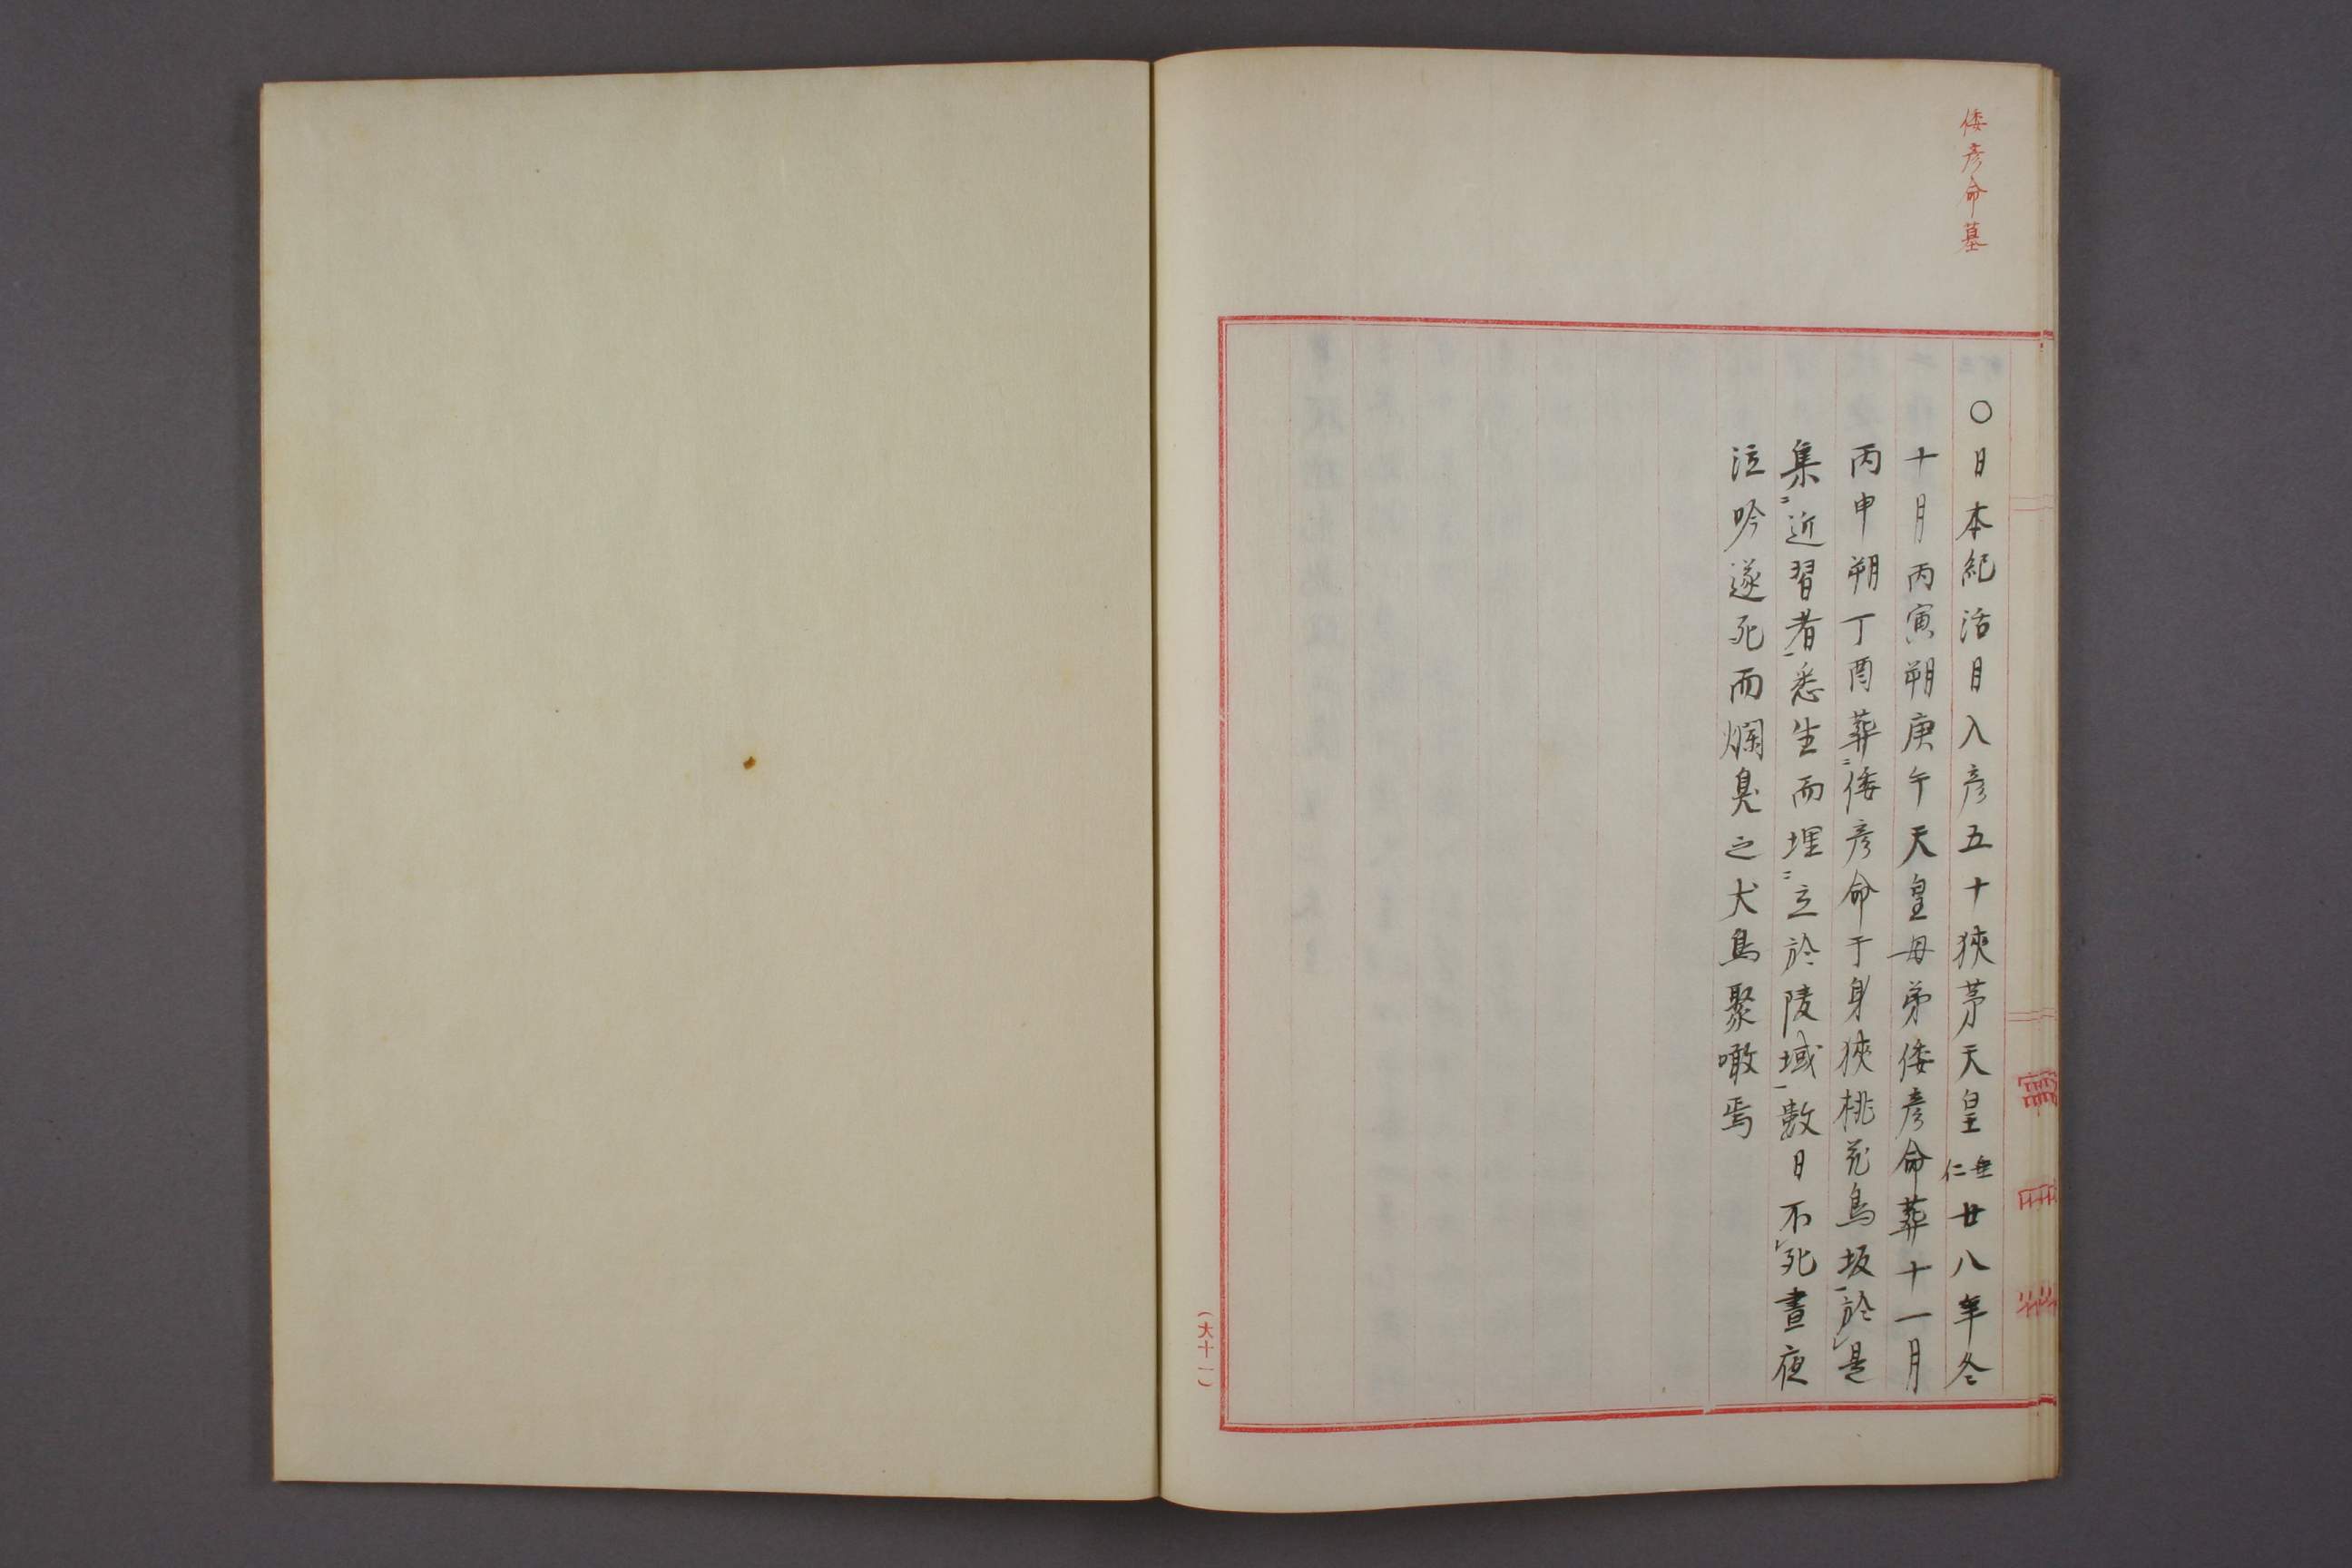 倭彦命墓
○日本紀活目入彦五十狹茅天皇垂仁廿八年冬
十月丙寅朔庚午天皇母弟倭彦命葬十一月
丙申朔丁酉葬二倭彦命于身狹桃花鳥坂一於レ是
集二近習者一悉生而埋二立於陵域一數日不レ死晝夜
泣吟遂死而爛臭之犬鳥聚噉焉
(大十一)